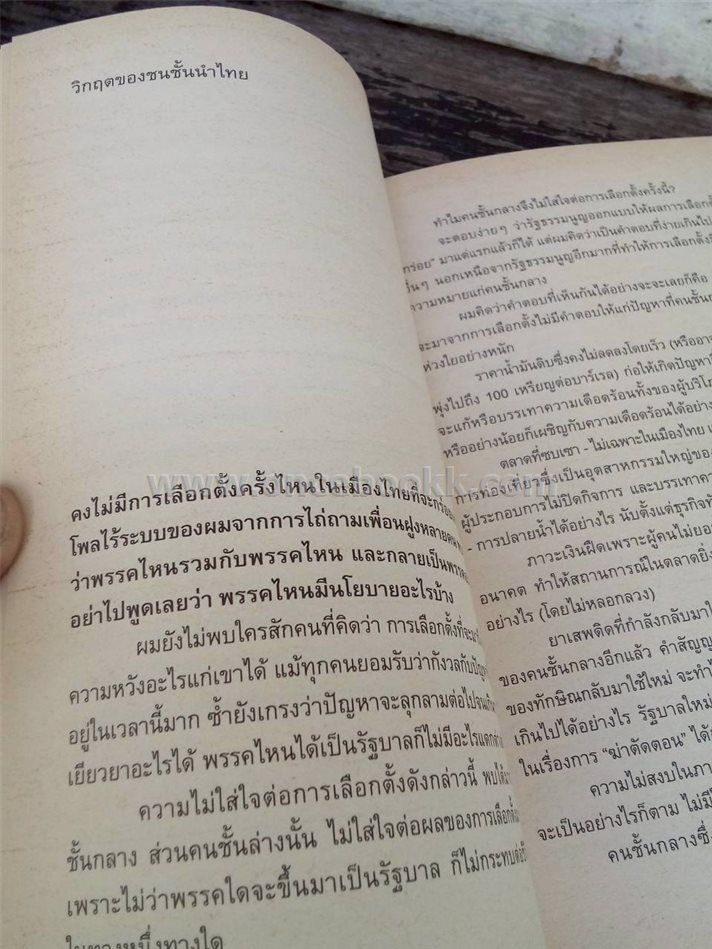 วิกฤตของชนชั้นนำไทย
คงไม่มีการเลือกตั้งครั้งไหนในเมืองไทยที่จะกร่อย
โพลไร้ระบบของผมจากการไถ่ถามเพื่อนฝูงหลายคน
ว่าพรรคไหนรวมกับพรรคไหน และกลายเป็นพรรค
อย่าไปพูดเลยว่า พรรคไหนมีนโยบายอะไรบ้าง
ผมยังไม่พบใครสักคนที่คิดว่า การเลือกตั้งที่จะมา
ความหวังอะไรแก่เขาได้ แม้ทุกคนยอมรับว่ากังวลกับปัญหา
อยู่ในเวลานี้มาก ซ้ำยังเกรงว่าปัญหาจะลุกลามต่อไปจน
เยียวยาอะไรได้ พรรคไหนได้เป็นรัฐบาลก็ไม่มีอะไรแตกต่าง
ความไม่ใส่ใจต่อการเลือกตั้งดังกล่าวนี้ พบได้
ชั้นกลาง ส่วนคนชั้นล่างนั้น ไม่ใส่ใจต่อผลของการเลือกตั้ง
เพราะไม่ว่าพรรคใดจะขึ้นมาเป็นรัฐบาล ก็ไม่กระทบต่อ
ในทางหนึ่งทางใด
ทำไมคนชั้นกลางจึงไม่ใส่ใจต่อการเลือกตั้งครั้งนี้?
จะตอบง่ายๆ ว่ารัฐธรรมนูญออกแบบให้ผลการเลือกตั้ง
"กร่อย" มาแต่แรกแล้วก็ได้ แต่ผมคิดว่าเป็นคำตอบที่ง่ายเกินไป
อื่นๆ นอกเหนือจากรัฐธรรมนูญอีกมากที่ทำให้การเลือกตั้ง
ความหมายแก่คนชั้นกลาง
ผมคิดว่าคำตอบที่เห็นกันได้อย่างจะจะเลยก็คือ
จะมาจากการเลือกตั้งไม่มีคำตอบให้แก่ปัญหาที่คนชั้น
ห่วงใยอย่างหนัก
ราคาน้ำมันดิบซึ่งคงไม่ลดลงโดยเร็ว (หรืออาจ
พุ่งไปถึง 100 เหรียญต่อบาร์เรล) ก่อให้เกิดปัญหา
จะแก้หรือบรรเทาความเดือดร้อนทั้งของผู้บริโภ
หรืออย่างน้อยก็เผชิญกับความเดือดร้อนได้อย่าง
ตลาดที่ซบเซา - ไม่เฉพาะในเมืองไทย
การท่องเที่ยวซึ่งเป็นอุตสาหกรรมใหญ่ของ
ผู้ประกอบการไม่ปิดกิจการ และบรรเทาคว
- การปลายน้ำได้อย่างไร นับตั้งแต่ธุรกิจ
ภาวะเงินฝืดเพราะผู้คนไม่ยอม
อนาคต ทำให้สถานการณ์ในตลาดยิ่ง
อย่างไร (โดยไม่หลอกลวง)
ยาเสพติดที่กำลังกลับมา
ของคนชั้นกลางอีกแล้ว คำสัญญ
ของทักษิณกลับมาใช้ใหม่ จะทำ
เกินไปได้อย่างไร รัฐบาลใหม่
ในเรื่องการ "ฆ่าตัดตอน" ได้
ความไม่สงบในภา
จะเป็นอย่างไรก็ตาม ไม่มี
คนชั้นกลางซึ่ง